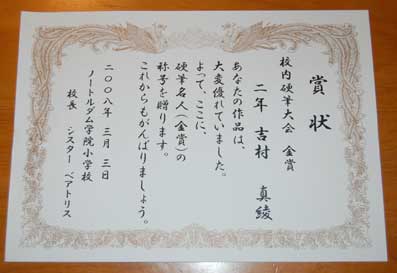 賞状
校内硬筆大会 金賞
二年 吉村 真綾
あなたの作品は、
大変優れていました。
よって、ここに、
硬筆名人(金賞)の
称号を贈ります。
これからもがんばりましょう。
二〇〇八年 三月 三日
ノートルダム学院小学校
校長 シスター ベアトリス